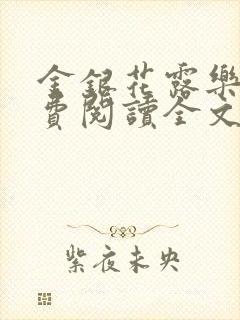 金銀花露樂
費閱讀全文
紫夜未央